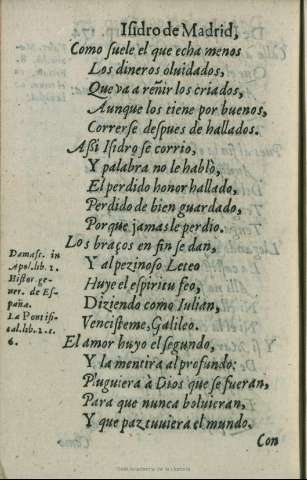 Isidro de Madrid,
Como suele el que echa menos
Los dineros oluidados,
Que va a reñir los criados,
Aunque los tiene por buenos,
Correrse despues de hallados.
Assi Isidro se corrio,
Y palabra no le hablò,
El perdido honor hallado,
Perdido de bien guardado,
Porque jamas le perdio.
Los braços en fin se dan,
Y al pezinoso Leteo
Huye el espiritu feo,
Diziendo como Iulian,
Venciste me, Galileo.
El amor huyo el segundo,
Y la mentira al profundo:
Pluguiera à Dios que se fueran,
Para que nunca boluieran,
Y que paz tuuiera el mundo.
Con
Damasc. in
Apol. lib. 2.
Histor. ge-
ner. de Es-
paña.
La Pontifi-
cal. lib. 2. c.
6.